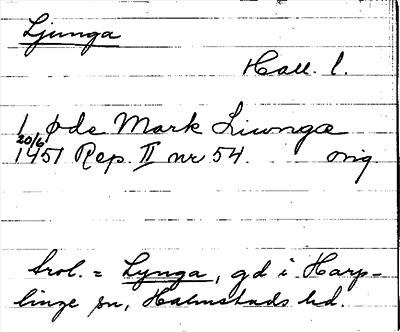 Ljunga
Hall. l.
1 øde Mark Liwngæ
20/6
1451 Rep. II nr 54. orig
Trol. = Lynga, gd i Harp-
linge sn, Halmstads hd.